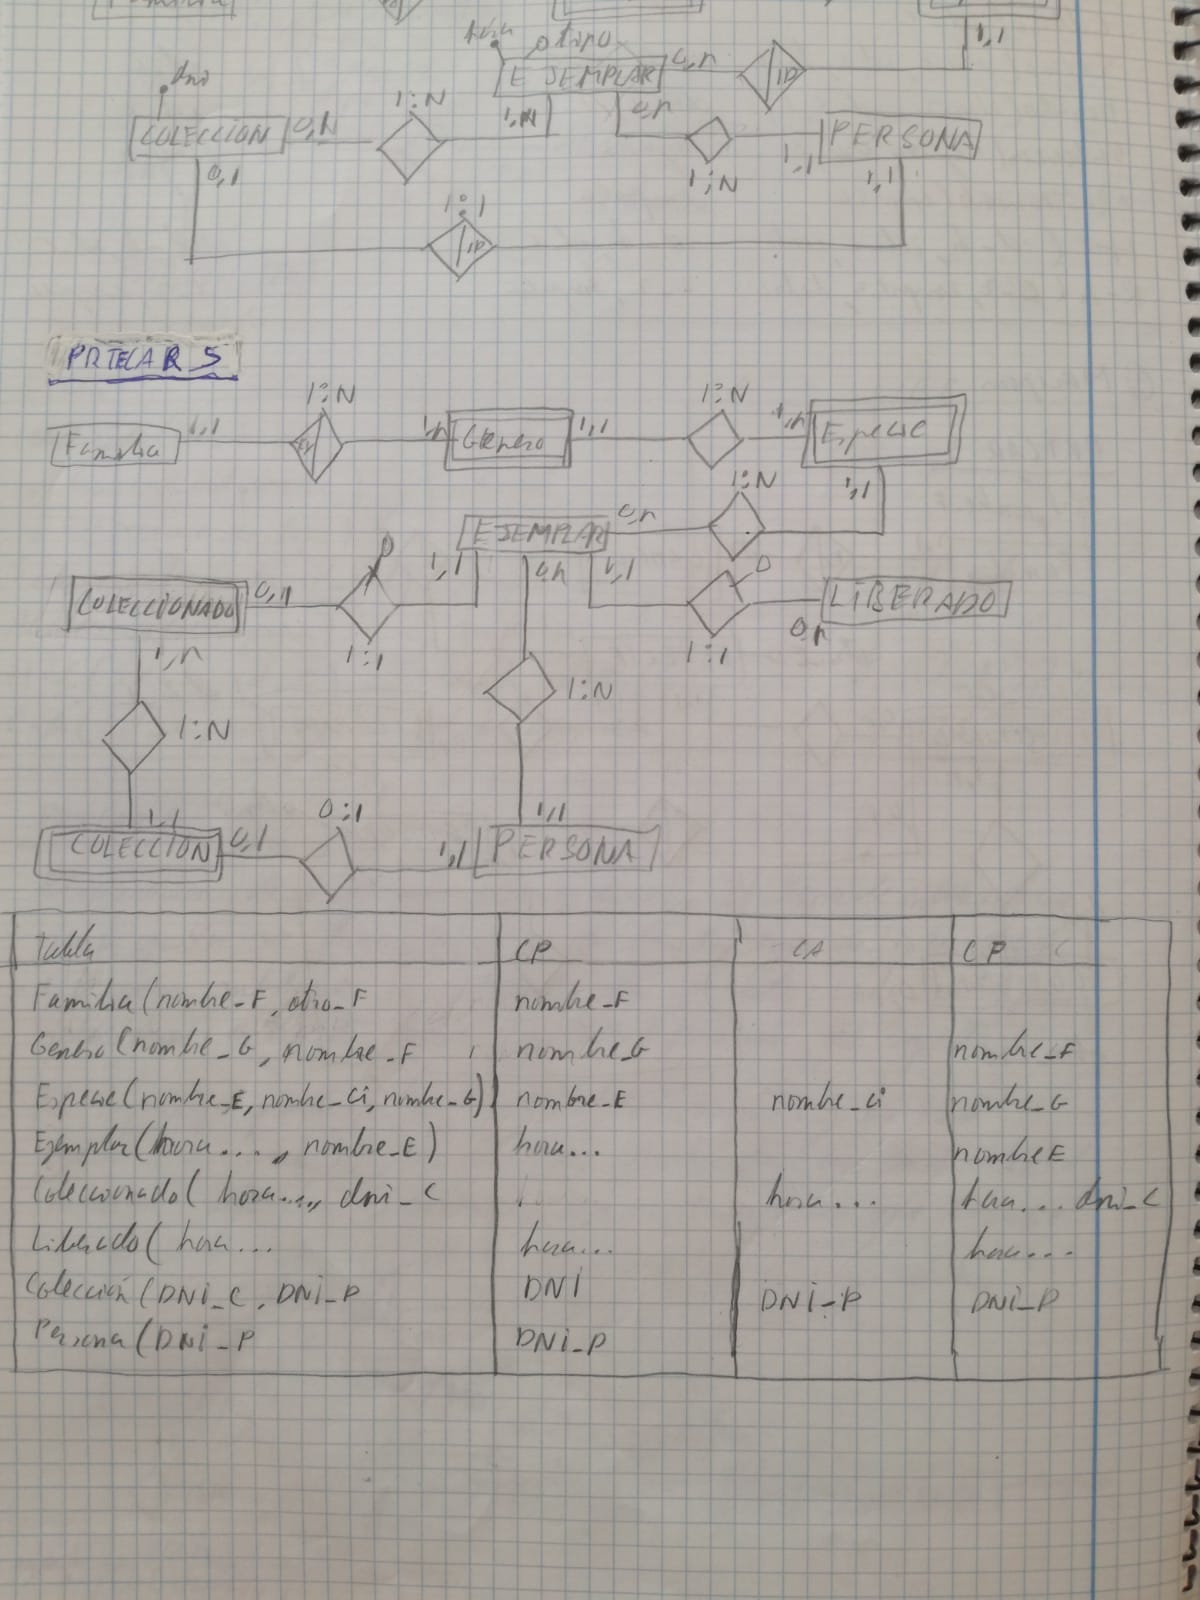 Familia
1,1
hora
tipo
EJEMPLAR
0,n
ID
dni
1:N
COLECCION
0,N
1,N
0,n
PERSONA
1,1
0,1
1:N
1,1
1:1
ID
PRTECAR 5
1:N
1:N
Familia
1,1
1,n
Genero
1,1
1,n
Especie
1:N
1,1
EJEMPLAR
0,n
COLECCIONADO
0,n
1,1
0,n
1,1
LIBERADO
0,n
1:1
1:1
1,n
1:N
1:N
0:1
1,1
1,1
COLECCION
0,1
1,1
PERSONA
Tabla CP CA CP
Familia (nombre_F, otro_F nombre_F
Genero (nombre_G, nombre_F nombre_G nombre_F
Especie (nombre_E, nombre_Ci, nombre_G) nombre_E nombre_Ci nombre_G
Ejemplar (hora..., nombre_E) hora... nombreE
Coleccionado (hora..., dni_C hora... hora... dni_C
Liberado (hora... hora... hora...
Colección (DNi_C, DNi_P DNi DNi_P DNi_P
Persona (DNi_P DNi_P